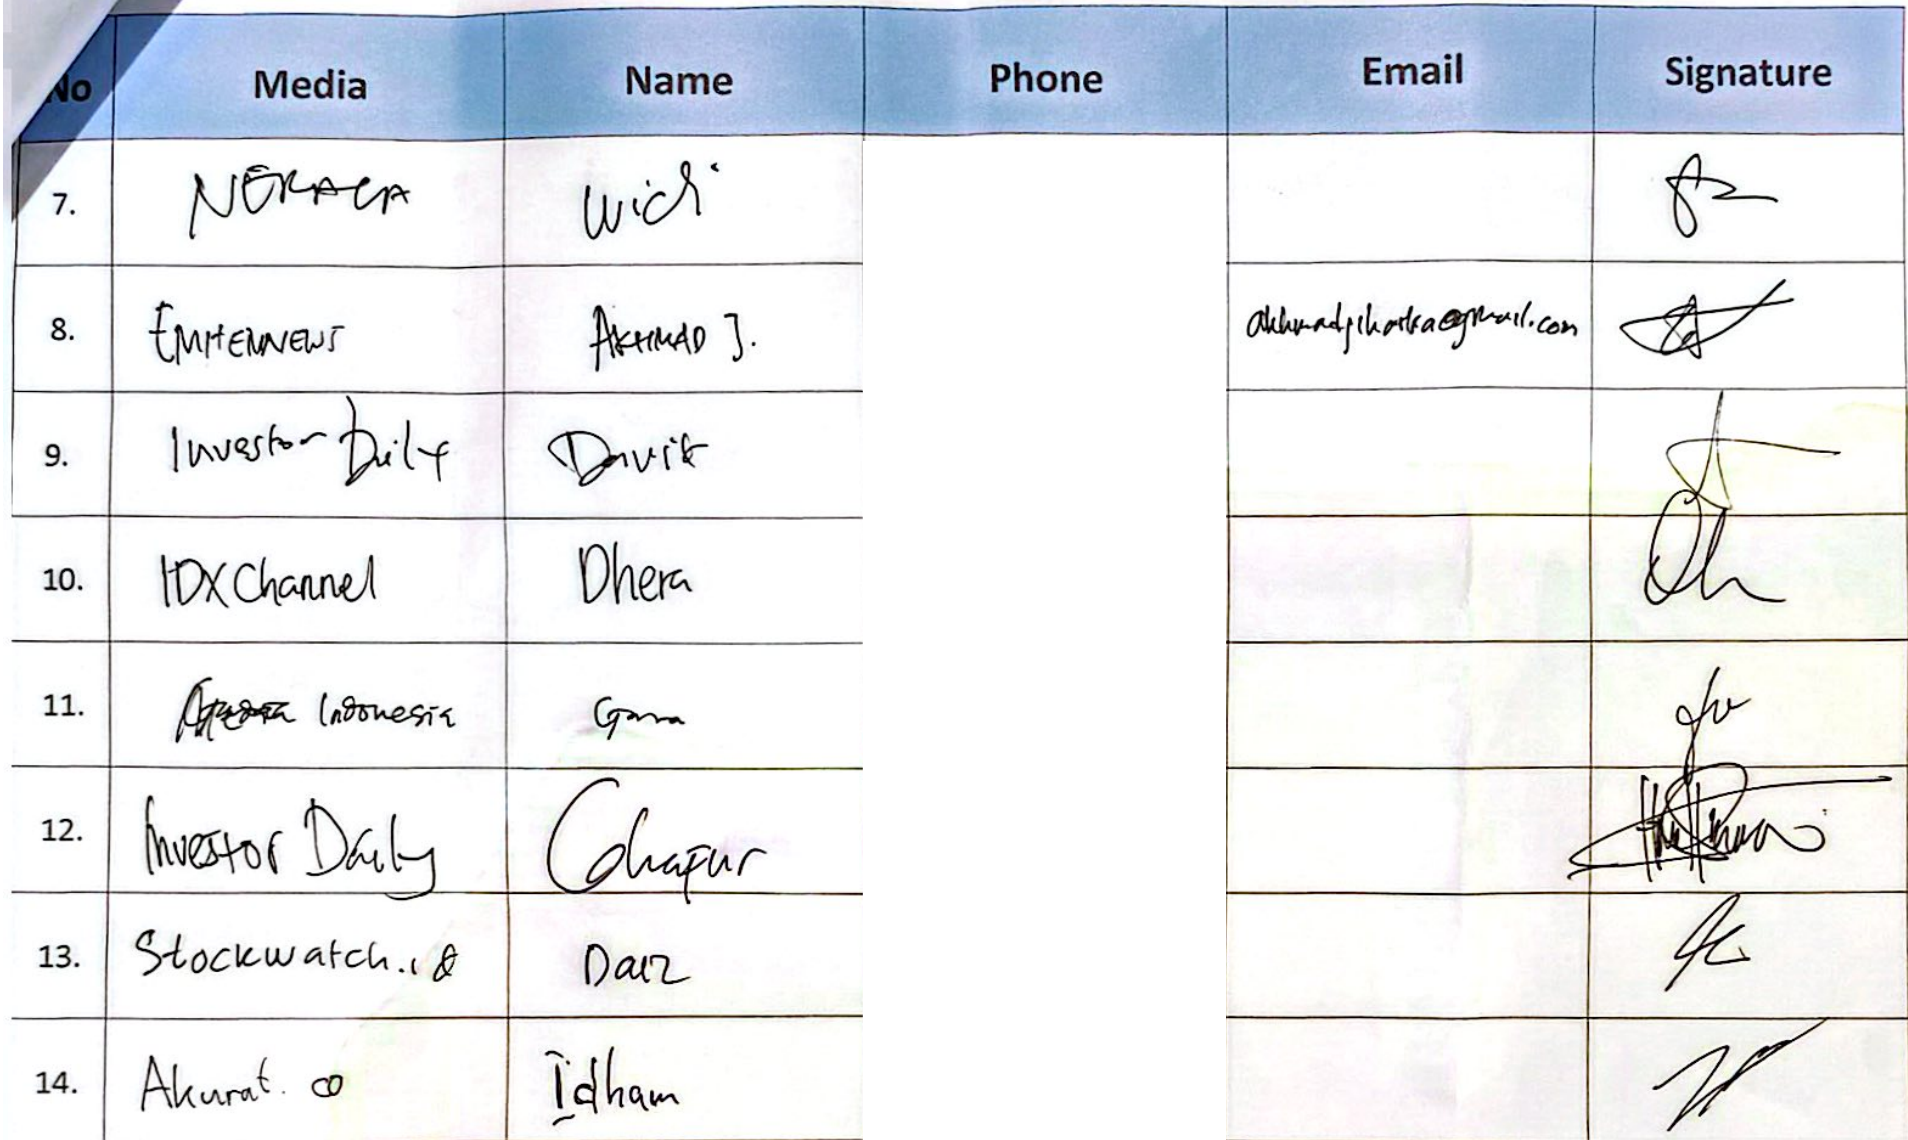 No Media Name Phone Email Signature
7. NERACA Wici
8. EMITENNEWS AKHMAD J.
9. Investor Daily David
10. IDX Channel Dhera
11. Indonesia Gama
12. Investor Daily Ghafur
13. Stockwatch.id Daiz
14. Akurat.co Idham